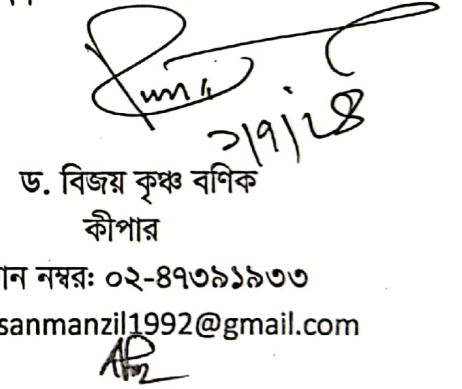 ২/৭/২৪
ড. বিজয় কৃষ্ণ বণিক
কীপার
ান নম্বরঃ ০২-৪৭৩৯১৯৩৩
sanmanzil1992@gmail.com